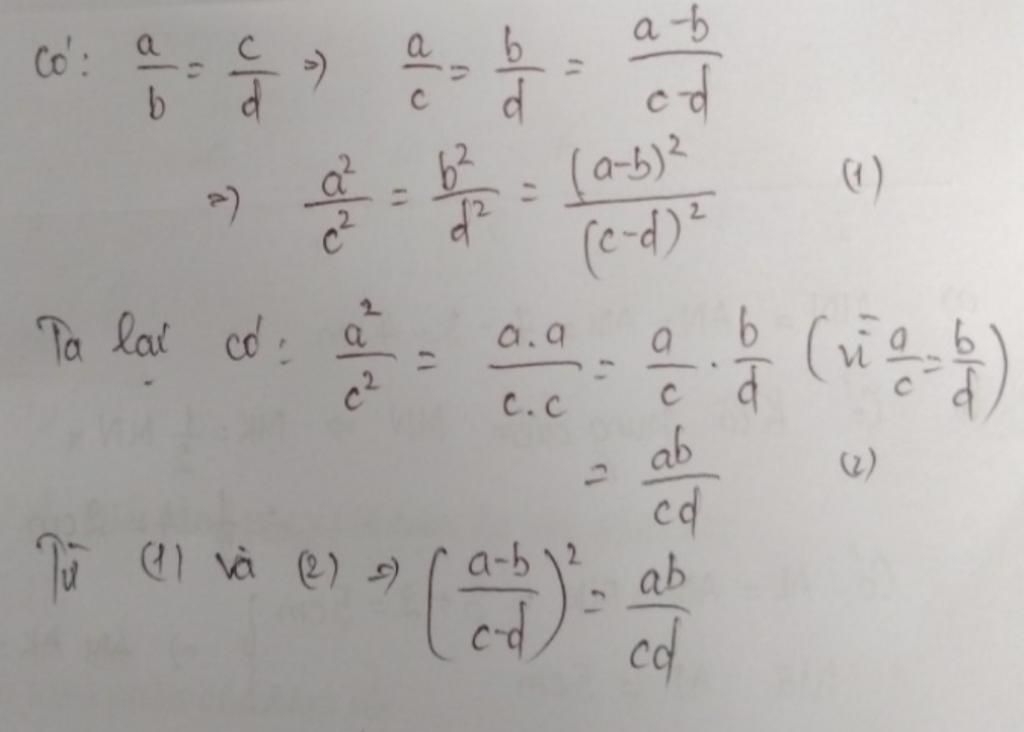 Có: a/b = c/d => a/c = b/d = a-b/c-d
=> a²/c² = b²/d² = (a-b)²/(c-d)² (1)
Ta lại có: a²/c² = a.a/c.c = a/c . b/d (vì a/c = b/d)
= ab/cd (2)
Từ (1) và (2) => (a-b/c-d)² = ab/cd